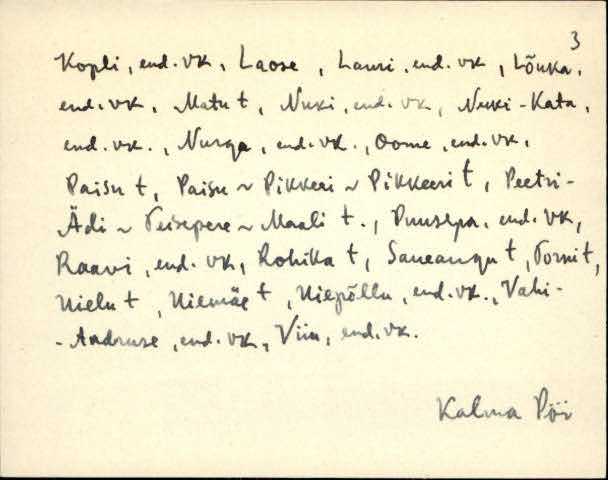 3
Kopli, end. vk., Laose, Lauri, end. vk., Lõuka,
end. vk., Matu t, Nuki, end. vk., Nuki-Kata,
end. vk., Nurga, end. vk., Oome, end. vk.,
Paisu t, Paisu ~ Pikkeri ~ Pikkeeri t, Peetri-
Ädi ~ Teisepere ~ Maali t., Puusepa, end. vk,
Raavi, end. vk, Rohika t, Saueaugu t, Torni t,
Uielu t, Uiemäe t, Uiepõllu, end. vk., Vahi-
-Andruse, end. vk, Viiu, end. vk.
Kalma Pöi